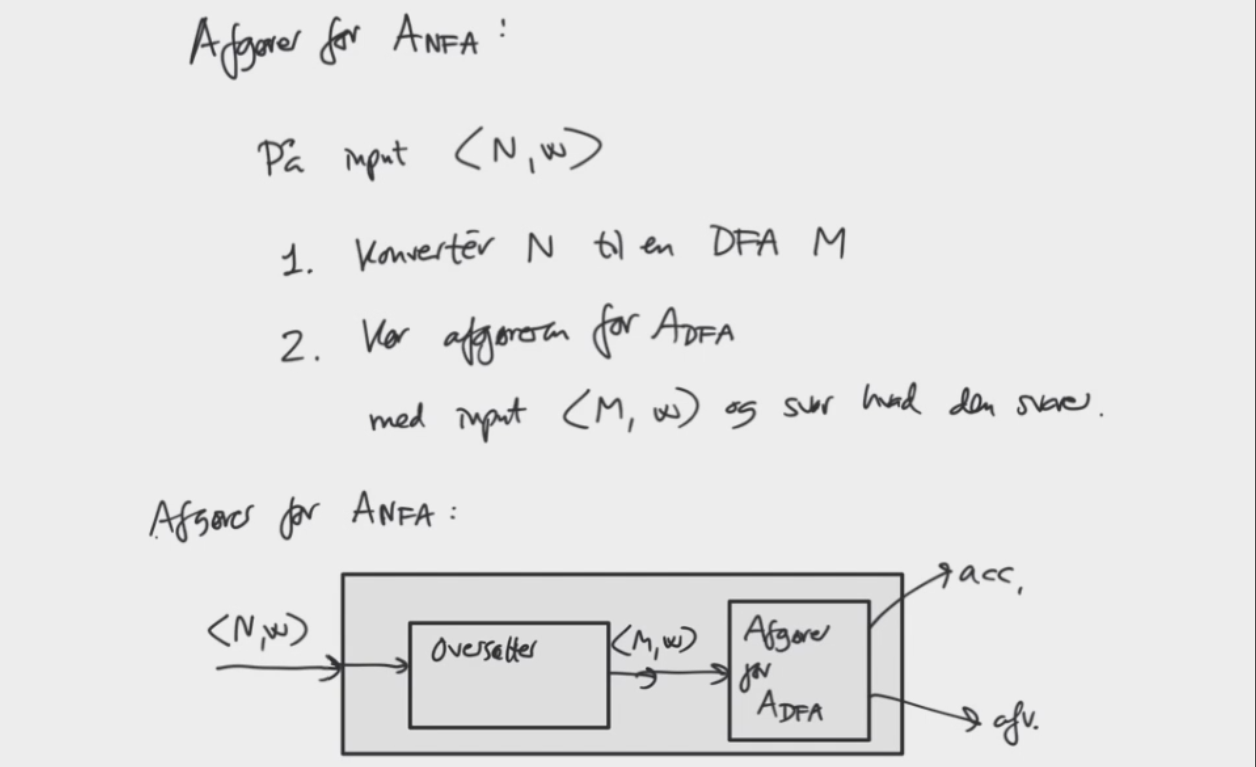 Afgører for ANFA:
På input ⟨N, w⟩
1. Konvertér N til en DFA M
2. Kør afgøreren for ADFA
med input ⟨M, w⟩ og svar hvad den svarer.
Afgører for ANFA:
⟨N, w⟩
Oversætter
⟨M, w⟩
Afgører
for
ADFA
acc.
afv.